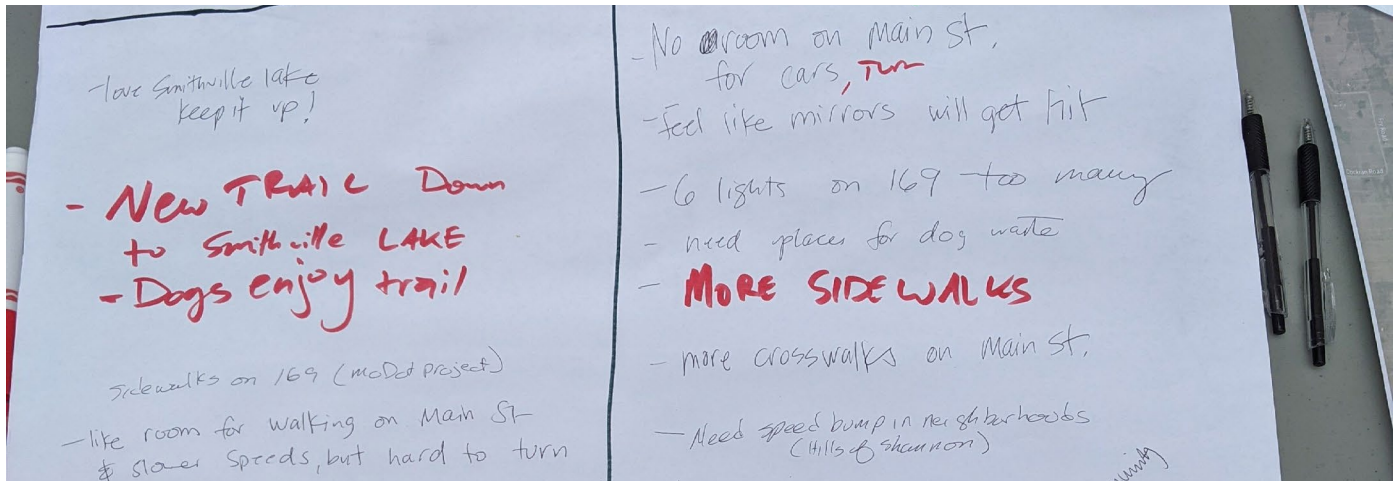 -love Smithville lake
keep it up!
- New TRAIL Down
to Smithville LAKE
- Dogs enjoy trail
Sidewalks on 169 (MoDot project)
- like room for walking on Main St
& slower speeds, but hard to turn
- No room on Main St.
for cars, Turn
- Feel like mirrors will get hit
- 6 lights on 169 too many
- need places for dog waste
- MORE SIDEWALKS
- more crosswalks on Main St.
- Need speed bump in neighborhoods
(Hills of Shannon)